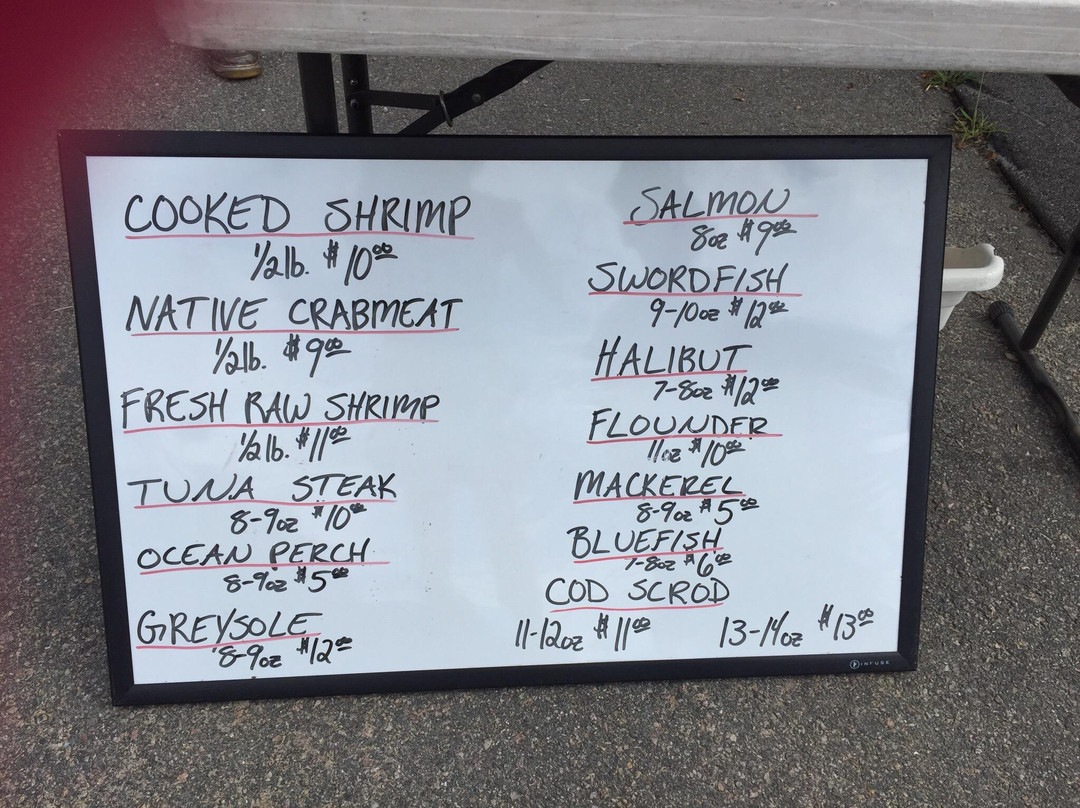 COOKED SHRIMP
1/2 lb. $10.00
NATIVE CRABMEAT
1/2 lb. $9.00
FRESH RAW SHRIMP
1/2 lb. $11.00
TUNA STEAK
8-9oz $10.00
OCEAN PERCH
8-9oz $5.00
GREYSOLE
8-9oz $12.00
SALMON
8oz $9.00
SWORDFISH
9-10oz $12.00
HALIBUT
7-8oz $12.00
FLOUNDER
11oz $10.00
MACKEREL
8-9oz $5.00
BLUEFISH
7-8oz $6.00
COD SCROD
11-12oz $11.00 13-14oz $13.00
INFUSE